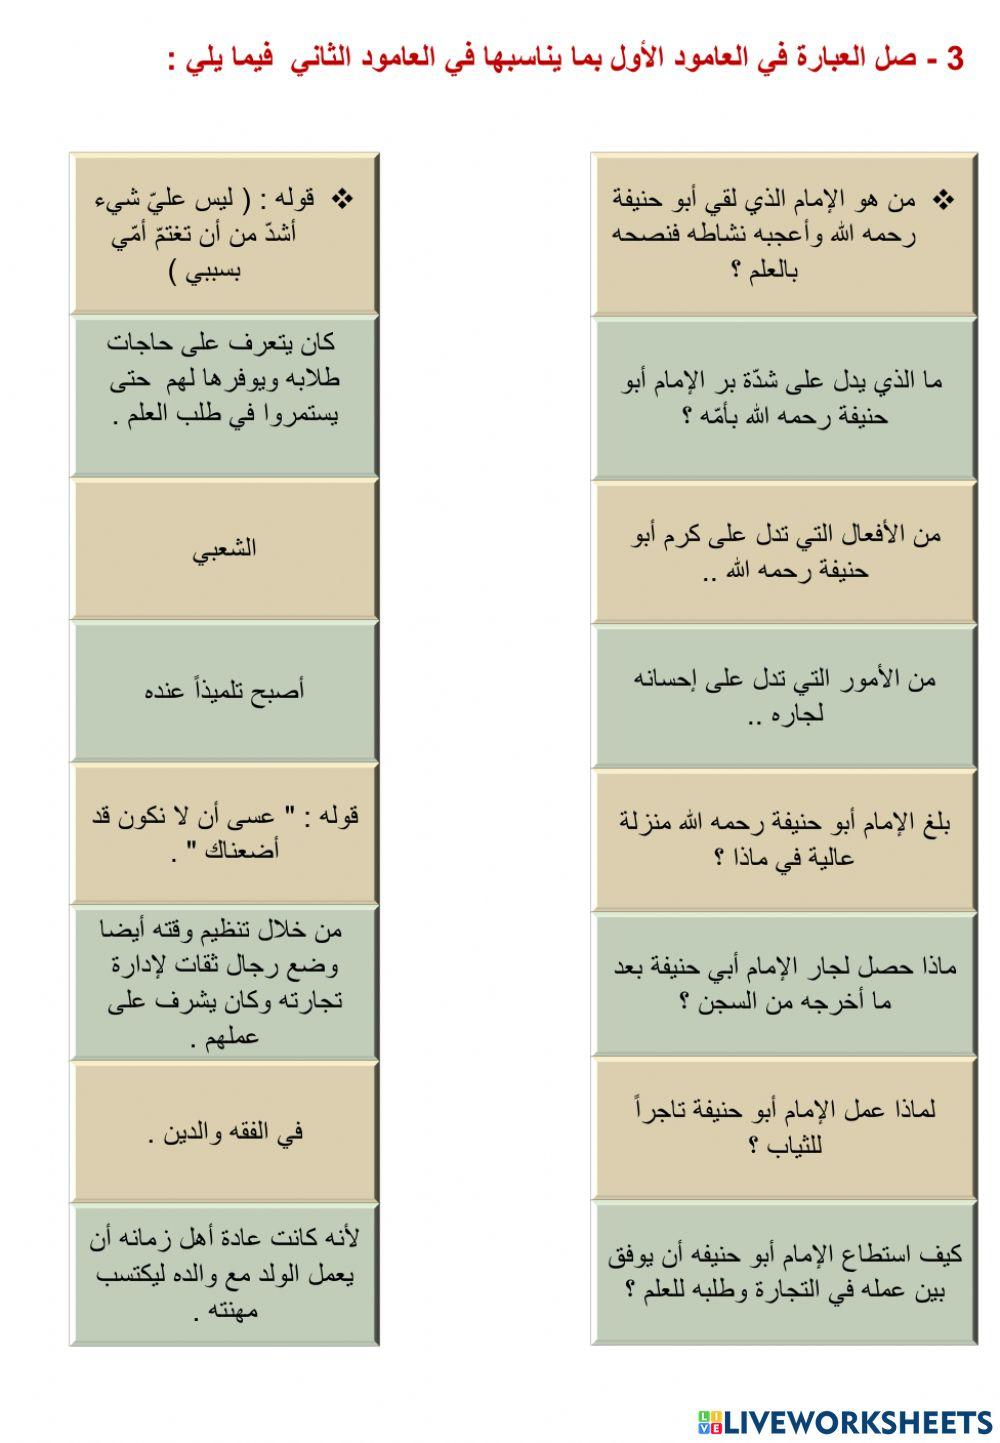 3 - صل العبارة في العامود الأول بما يناسبها في العامود الثاني فيما يلي :
❖ من هو الإمام الذي لقي أبو حنيفة
رحمه الله وأعجبه نشاطه فنصحه
بالعلم ؟
ما الذي يدل على شدّة بر الإمام أبو
حنيفة رحمه الله بأمّه ؟
من الأفعال التي تدل على كرم أبو
حنيفة رحمه الله ..
من الأمور التي تدل على إحسانه
لجاره ..
بلغ الإمام أبو حنيفة رحمه الله منزلة
عالية في ماذا ؟
ماذا حصل لجار الإمام أبي حنيفة بعد
ما أخرجه من السجن ؟
لماذا عمل الإمام أبو حنيفة تاجراً
للثياب ؟
كيف استطاع الإمام أبو حنيفه أن يوفق
بين عمله في التجارة وطلبه للعلم ؟
❖ قوله : ( ليس عليّ شيء
أشدّ من أن تغتمّ أمّي
بسببي )
كان يتعرف على حاجات
طلابه ويوفرها لهم حتى
يستمروا في طلب العلم .
الشعبي
أصبح تلميذاً عنده
قوله : " عسى أن لا نكون قد
أضعناك " .
من خلال تنظيم وقته أيضا
وضع رجال ثقات لإدارة
تجارته وكان يشرف على
عملهم .
في الفقه والدين .
لأنه كانت عادة أهل زمانه أن
يعمل الولد مع والده ليكتسب
مهنته .
LIVEWORKSHEETS